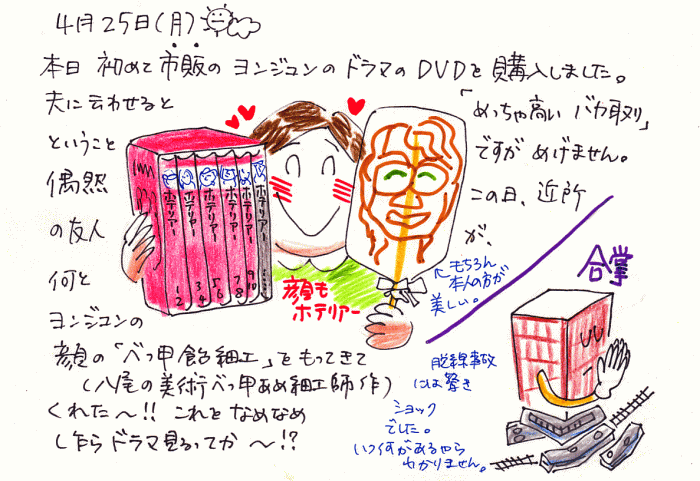 4月25日(月)
本日 初めて市販の ヨンジュンの ドラマの DVDを 購入しました。
夫に云わせると
「めっちゃ高い バカ取り」
ということ
ですが めげません。
偶然
この日、近所
の友人
が、
何と
ヨンジュンの
顔の「べっ甲飴細工」をもってきて
(八尾の美術べっ甲あめ細工師 作)
くれた〜!! これを なめなめ
しながら ドラマ見るってか 〜!?
ホテリアー
ホテリアー
ホテリアー
ホテリアー
ホテリアー
ホテリアー
1 2
3 4
5 6
7 8
9 10
顔も
ホテリアー
もちろん
本人の方が
美しい。
合掌
脱線事故
には驚き
ショック
でした。
いつ何があるやら
わかりません。